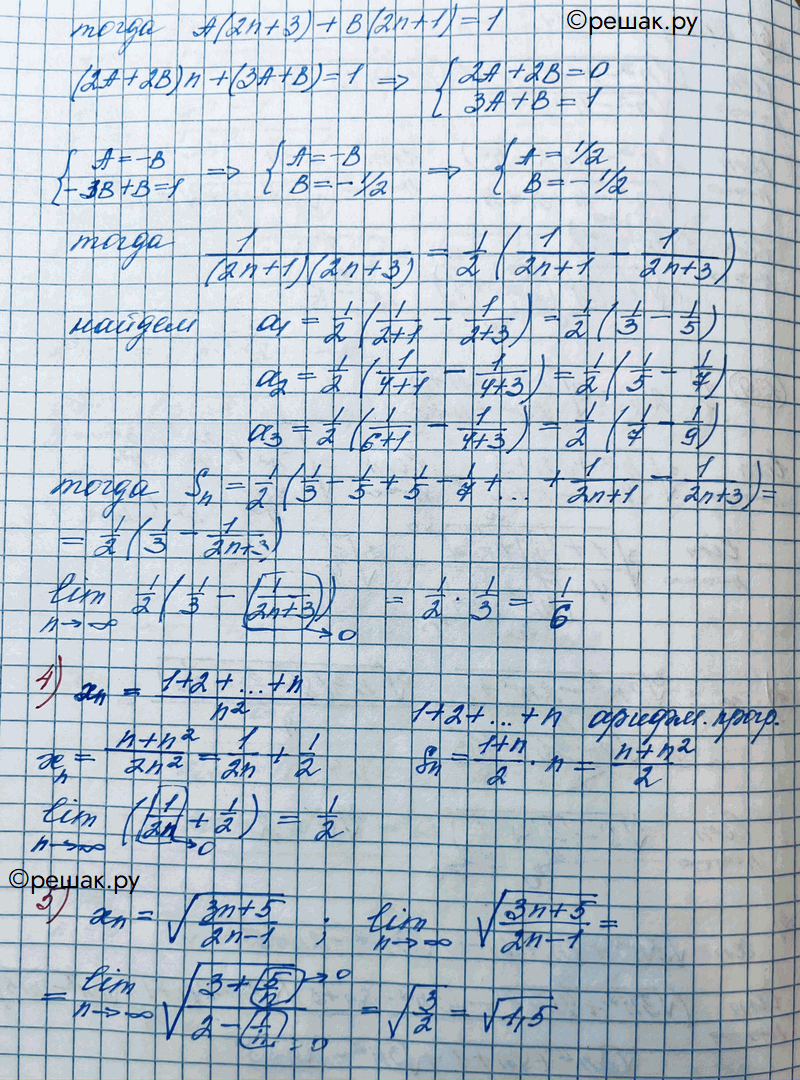 тогда A(2n+3)+B(2n+1)=1
©решак.ру
(2A+2B)n+(3A+B)=1 => { 2A+2B=0
3A+B=1
{ A=-B
-3B+B=1 => { A=-B
B=-1/2 => { A=1/2
B=-1/2
тогда 1/((2n+1)(2n+3)) = 1/2 (1/(2n+1) - 1/(2n+3))
найдем a1 = 1/2 (1/(2+1) - 1/(2+3)) = 1/2 (1/3 - 1/5)
a2 = 1/2 (1/(4+1) - 1/(4+3)) = 1/2 (1/5 - 1/7)
a3 = 1/2 (1/(6+1) - 1/(4+3)) = 1/2 (1/7 - 1/9)
тогда Sn = 1/2 (1/3 - 1/5 + 1/5 - 1/7 + ... + 1/(2n+1) - 1/(2n+3)) =
= 1/2 (1/3 - 1/(2n+3))
lim n→∞ 1/2 (1/3 - (1/(2n+3))) = 1/2 · 1/3 = 1/6
→0
4) xn = (1+2+...+n)/n²
1+2+...+n арифм. прогр.
xn = (n+n²)/2n² = 1/2n + 1/2
Sn = (1+n)/2 · n = (n+n²)/2
lim n→∞ (1/2n + 1/2) = 1/2
→0
©решак.ру
5) xn = √((3n+5)/(2n-1)) ; lim n→∞ √((3n+5)/(2n-1)) =
= lim n→∞ √((3+5/n)/(2-1/n)) = √(3/2) = √1,5
→0
→0